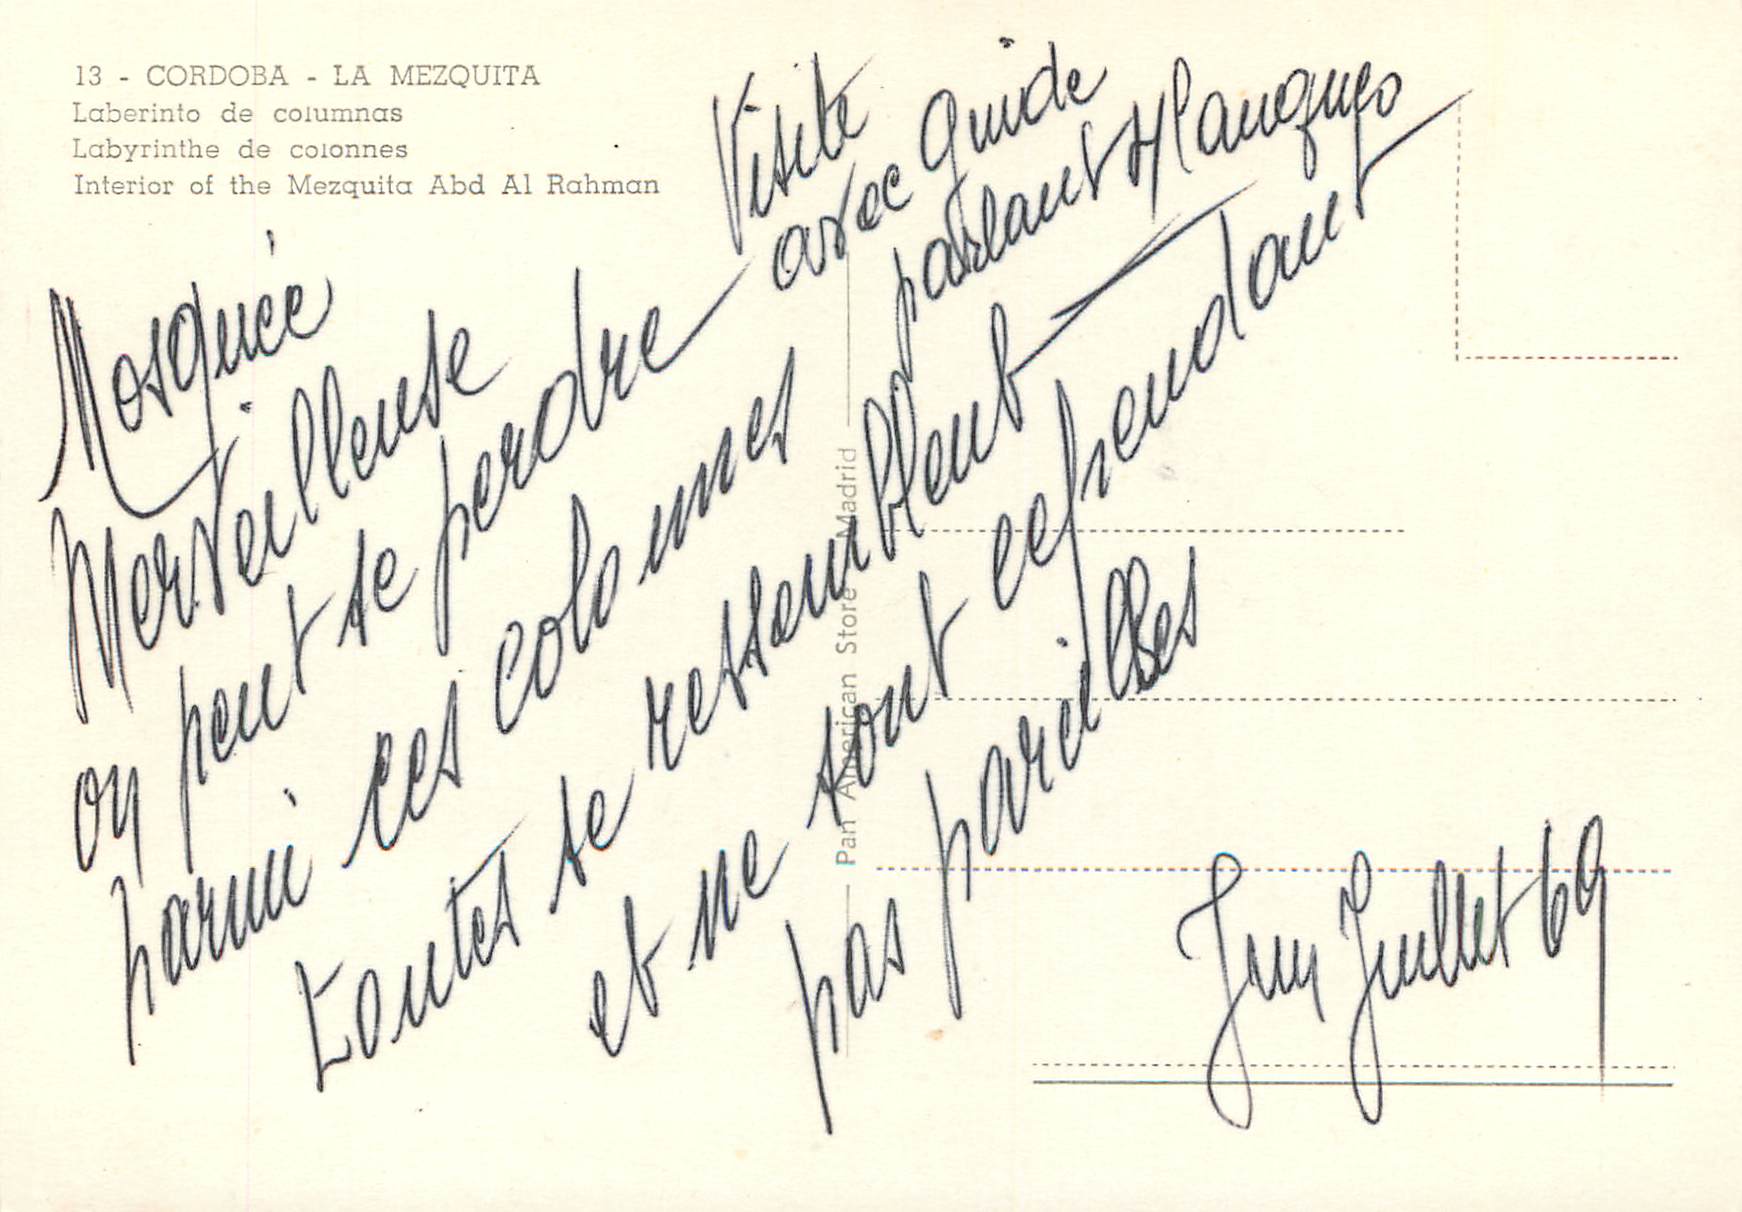 13 - CORDOBA - LA MEZQUITA
Laberinto de columnas
Labyrinthe de colonnes
Interior of the Mezquita Abd Al Rahman
Visite
avec Guide
parlant 4 langues
Mosquée
Merveilleuse
on peut se perdre
parmi ces colonnes
toutes se ressemblent
et ne sont cependant
pas pareilles
Juin Juillet 69
Pan American Store - Madrid